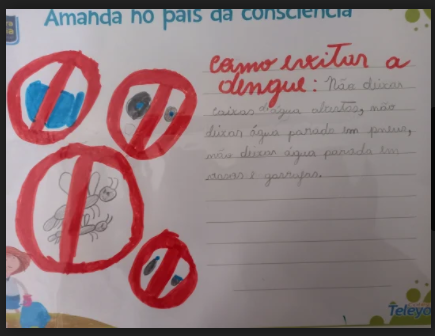 Amanda no país da consciência
Como evitar a
dengue: Não deixar
caixas d'água abertas, não
deixar água parada em pneus,
não deixar água parada em
vasos e garrafas.
Teleyo